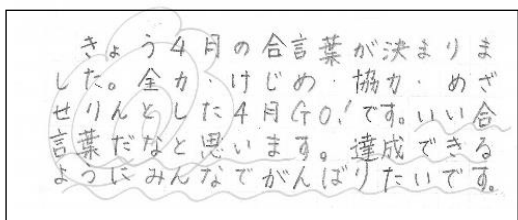 きょう4月の合言葉が決まりま
した。全力・けじめ・協力・めざ
せりんとした4月GO!です。いい合
言葉だなと思います。達成できる
ようにみんなでがんばりたいです。